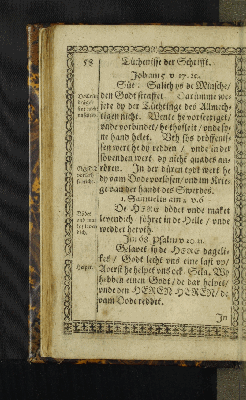 58 Tüchenisse der Schrifft.
Johan 5 v 17. 20.
Süt: Salich ys de Minsche/
den Godt straffet. Darümme we-
jere dy der Tüchtinge des Allmech-
tigen nicht. Wente he vorseeriget/
vnde vorbindet/ he thosleit/ vnde sy-
ne hand helet. Vth söß dröffenis-
sen wert he dy redden / vnde in der
söuenden wert dy nicht quades an-
rören. In der düren tydt wert he
dy vam Dode vorlösen/ vnd im Krie-
ge van der handt des Swerdes.
1. Samuelis am 2 v. 6
De HERE dödet vnde maket
levendich/ föhret in de Helle / vnde
wedder heruth.
Im 68 Psalm v 20 21.
Gelavet sy de HERE dageli-
kes / Godt lecht vns eine last vp/
Averst he helpet vns ock. Sela. Wy
hebben einen Godt / de dar helpet/
vnde den HEREN HEREN / de
vam Dode reddet.
In